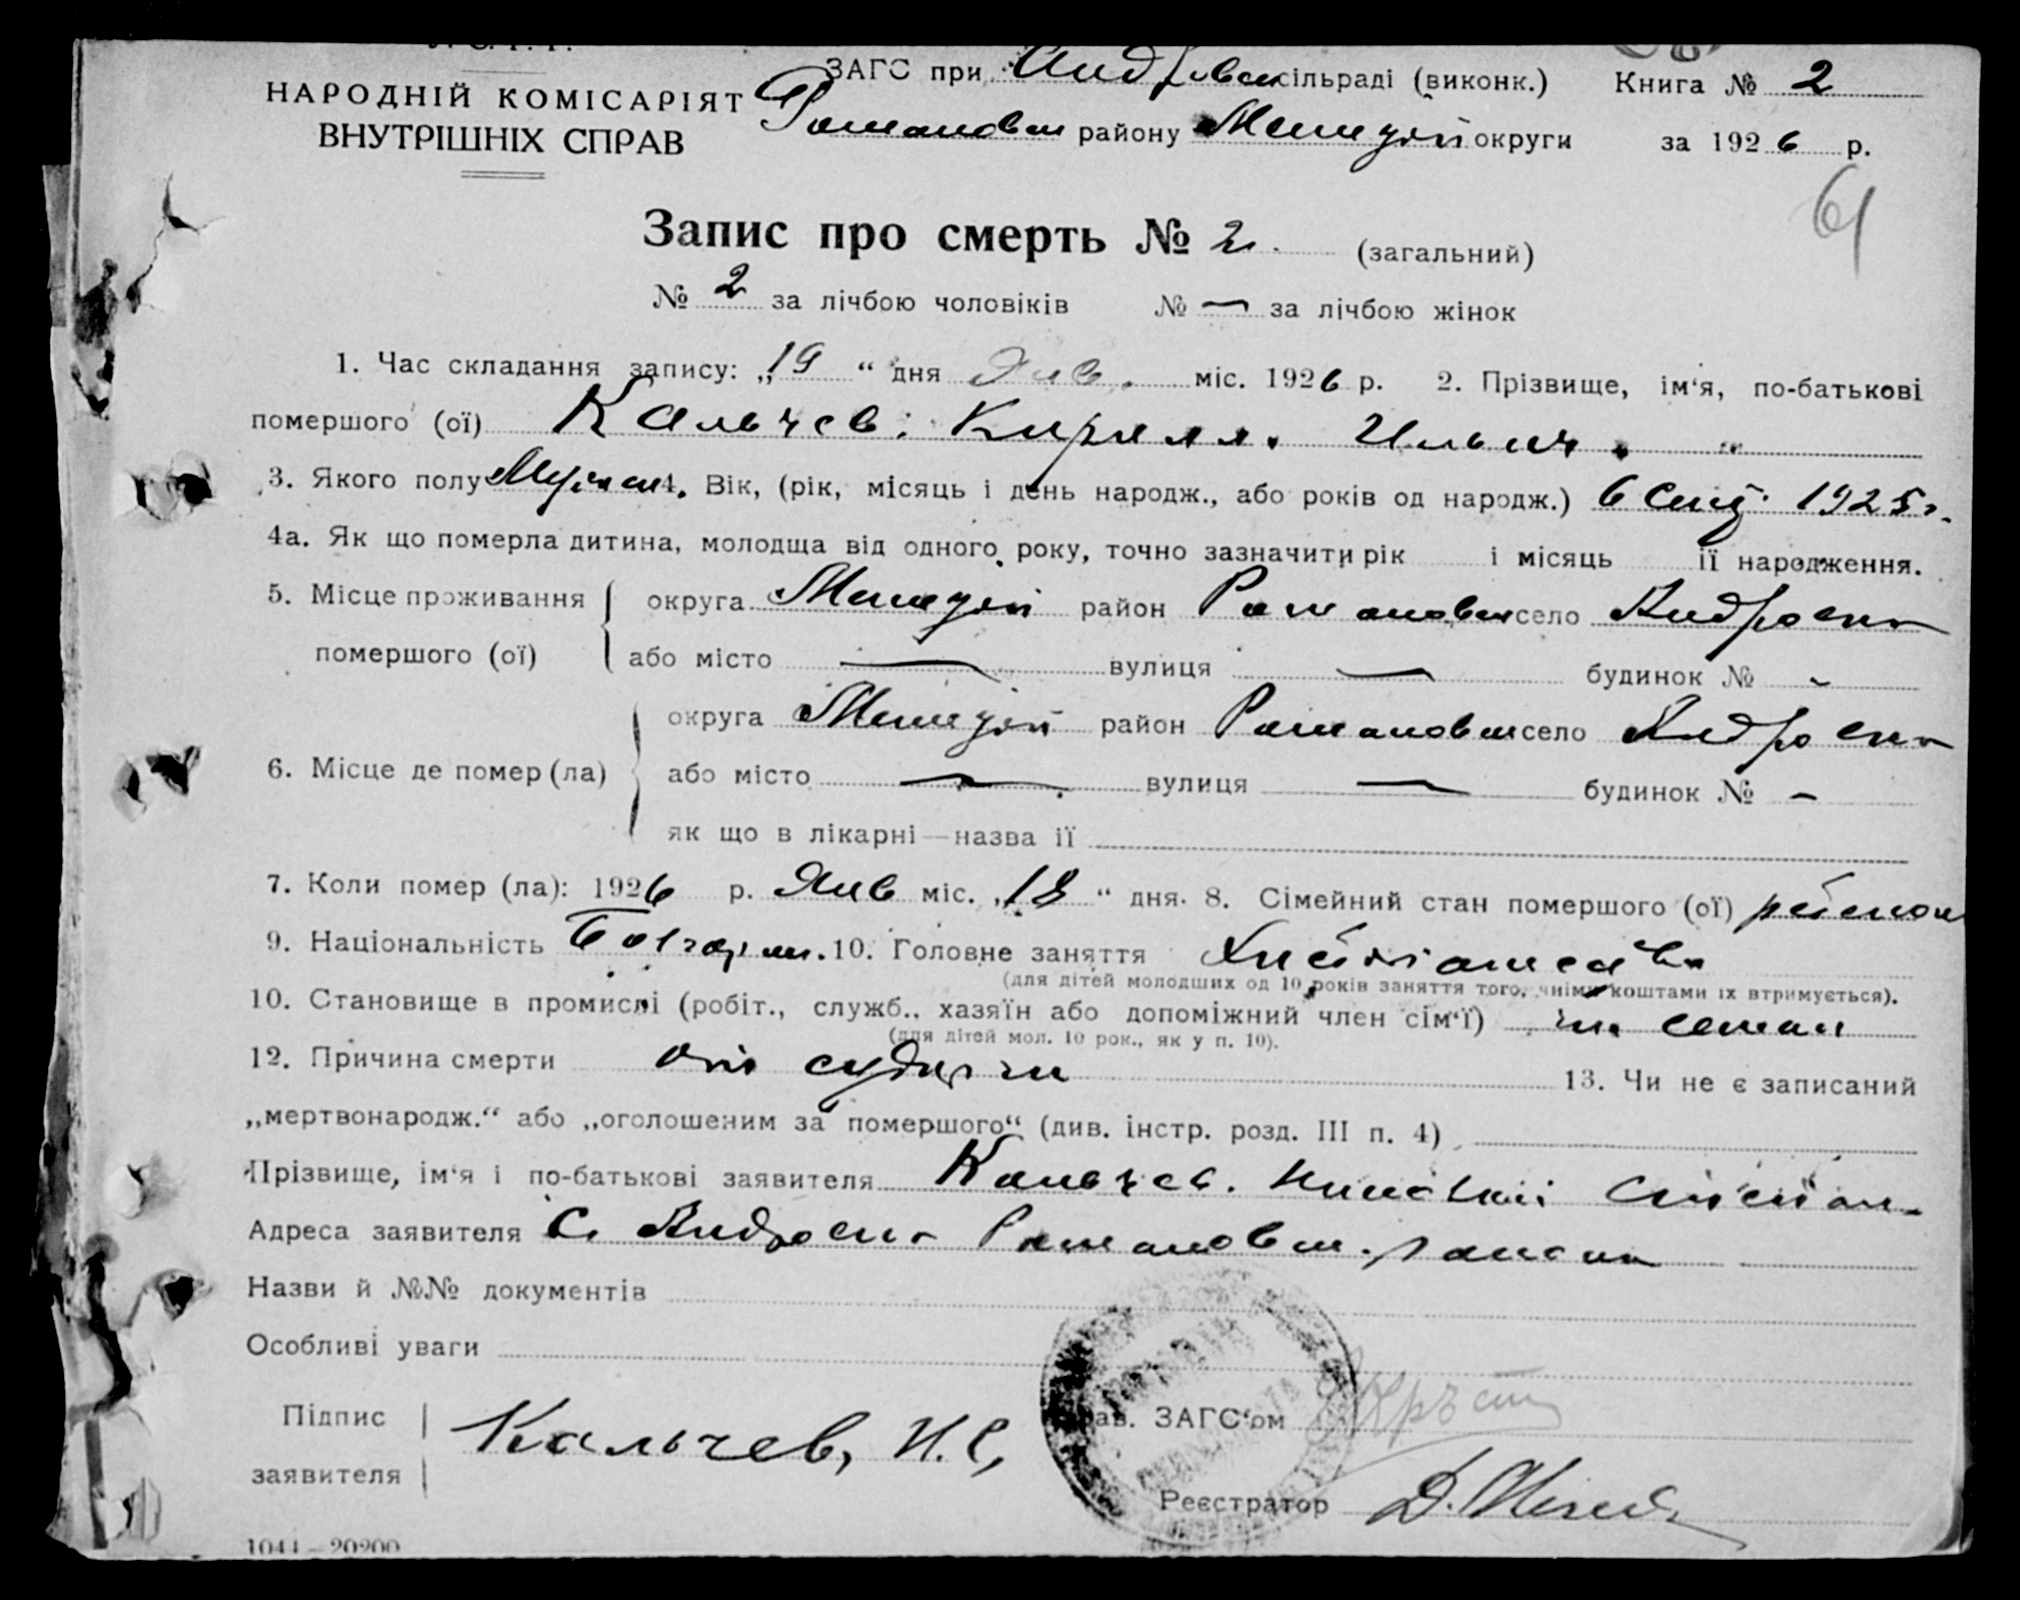 НАРОДНІЙ КОМІСАРІЯТ
ВНУТРІШНІХ СПРАВ
ЗАГС при сільраді (виконк.) Книга № 2
Романовск району округи за 1926 р.
61
Запис про смерть № 2. (загальний)
№ 2 за лічбою чоловіків № — за лічбою жінок
1. Час складання запису: „19“ дня Янв. міс. 1926 р. 2. Прізвище, ім‘я, по-батькові
помершого (ої) Кальчев. Кирилл. Ильич.
3. Якого полу Мужск 4. Вік, (рік, місяць і день народж., або років од народж.) 6 1925 г.
4а. Як що померла дитина, молодща від одного року, точно зазначити рік і місяць її народження.
5. Місце проживання округа район Романовск село Андровка
помершого (ої) або місто — вулиця — будинок № -
округа район Романовск село Андровка
6. Місце де помер (ла) або місто — вулиця — будинок № -
як що в лікарні—назва її
7. Коли помер (ла): 1926 р. Янв міс. „18“ дня. 8. Сімейний стан помершого (ої)
9. Національність Болгарин. 10. Головне заняття
(для дітей молодших од 10 років заняття того, чиїми коштами їх втримується).
10. Становище в промислі (робіт., служб., хазяїн або допоміжний член сім‘ї)
(для дітей мол. 10 рок., як у п. 10).
12. Причина смерти от 13. Чи не є записаний
„мертвонародж.“ або „оголошеним за помершого“ (див. інстр. розд. III п. 4)
Прізвище, ім‘я і по-батькові заявителя Кальчев. Николай Степан
Адреса заявителя С. Андровка Романовск. района
Назви й №№ документів
Особливі уваги
Підпис
заявителя Кальчев, Н. С,
Зав. ЗАГС‘ом
Реєстратор Д.
1044—20200